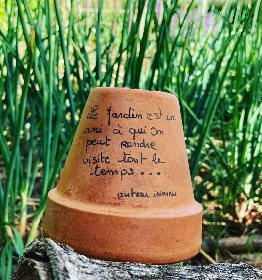 Le Jardin est un
ami à qui on
peut rendre
visite tout le
temps...
auteur inconnu